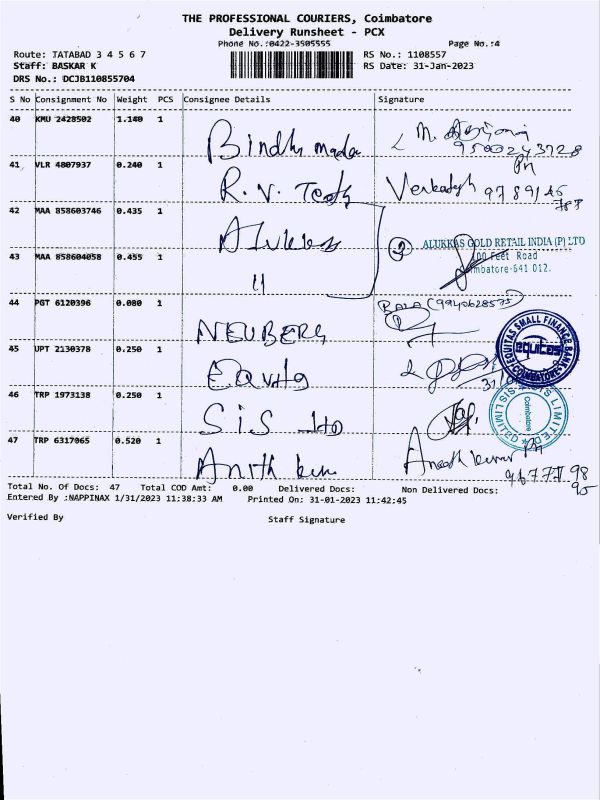 THE PROFESSIONAL COURIERS, Coimbatore
Delivery Runsheet - PCX
Phone No.:0422-3505555 Page No.:4
Route: TATABAD 3 4 5 6 7 RS No.: 1108557
Staff: BASKAR K RS Date: 31-Jan-2023
DRS No.: DCJB110855704
S No Consignment No Weight PCS Consignee Details Signature
40 KMU 2428502 1.140 1 Bindhu M.
9500243728
41 VLR 4807937 0.240 1 R.V. Teeth Venkatesh 9789145
PN
42 MAA 858603746 0.435 1 Alukkas
ALUKKAS GOLD RETAIL INDIA (P) LTD
100 Feet Road
43 MAA 858604058 0.455 1 11 Coimbatore-641 012.
44 PGT 6120396 0.080 1 NEUBERG BALA (9940628575)
EQUITAS SMALL FINANCE BANK
equitas
COIMBATORE
45 UPT 2130378 0.250 1 Equitas
46 TRP 1973138 0.250 1 SiS Ltd
SIS LIMITED
Coimbatore
47 TRP 6317065 0.520 1 Anith
PN
96777 98
95
Total No. Of Docs: 47 Total COD Amt: 0.00 Delivered Docs: Non Delivered Docs:
Entered By :NAPPINAX 1/31/2023 11:38:33 AM Printed On: 31-01-2023 11:42:45
Verified By Staff Signature